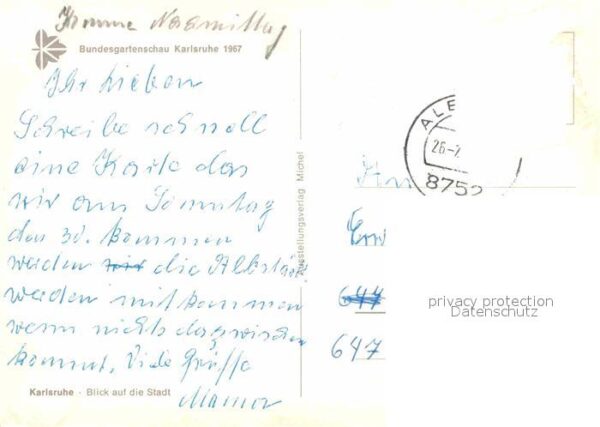 Komme Nachmittag
Bundesgartenschau Karlsruhe 1967
Ihr Lieben
Schreibe schnell
eine Karte das
wir am Sonntag
den 30. kommen
werden die
werden mit kommen
wenn nichts dazwischen
kommt. Viele Grüße
Mama
Karlsruhe - Blick auf die Stadt
Ausstellungsverlag Michel
ALE
26-
8752
Erw
644
647
privacy protection
Datenschutz